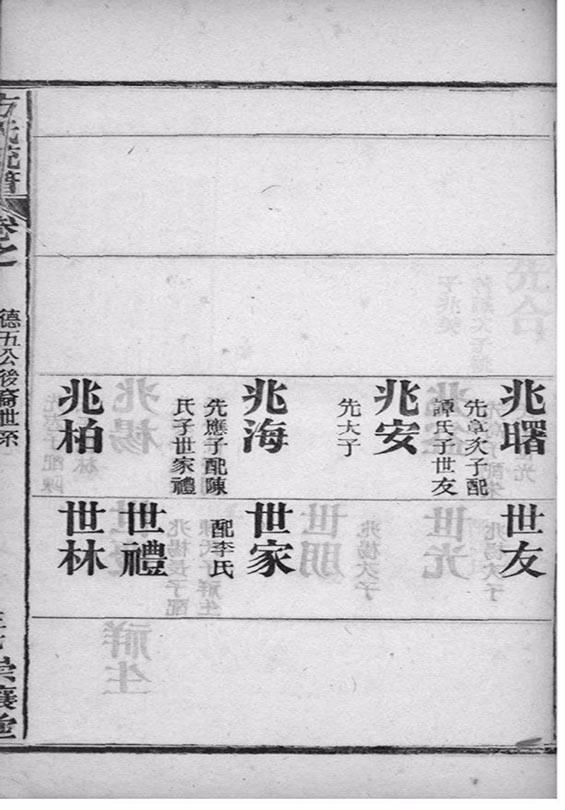 兆曙
先章次子配
譚氏子世友
兆安
先大子
兆海
先應子配陳
氏子世家禮
兆柏
世友
世家
配李氏
世禮
世林
方氏統譜
卷之
德五公後裔世系
崇讓堂